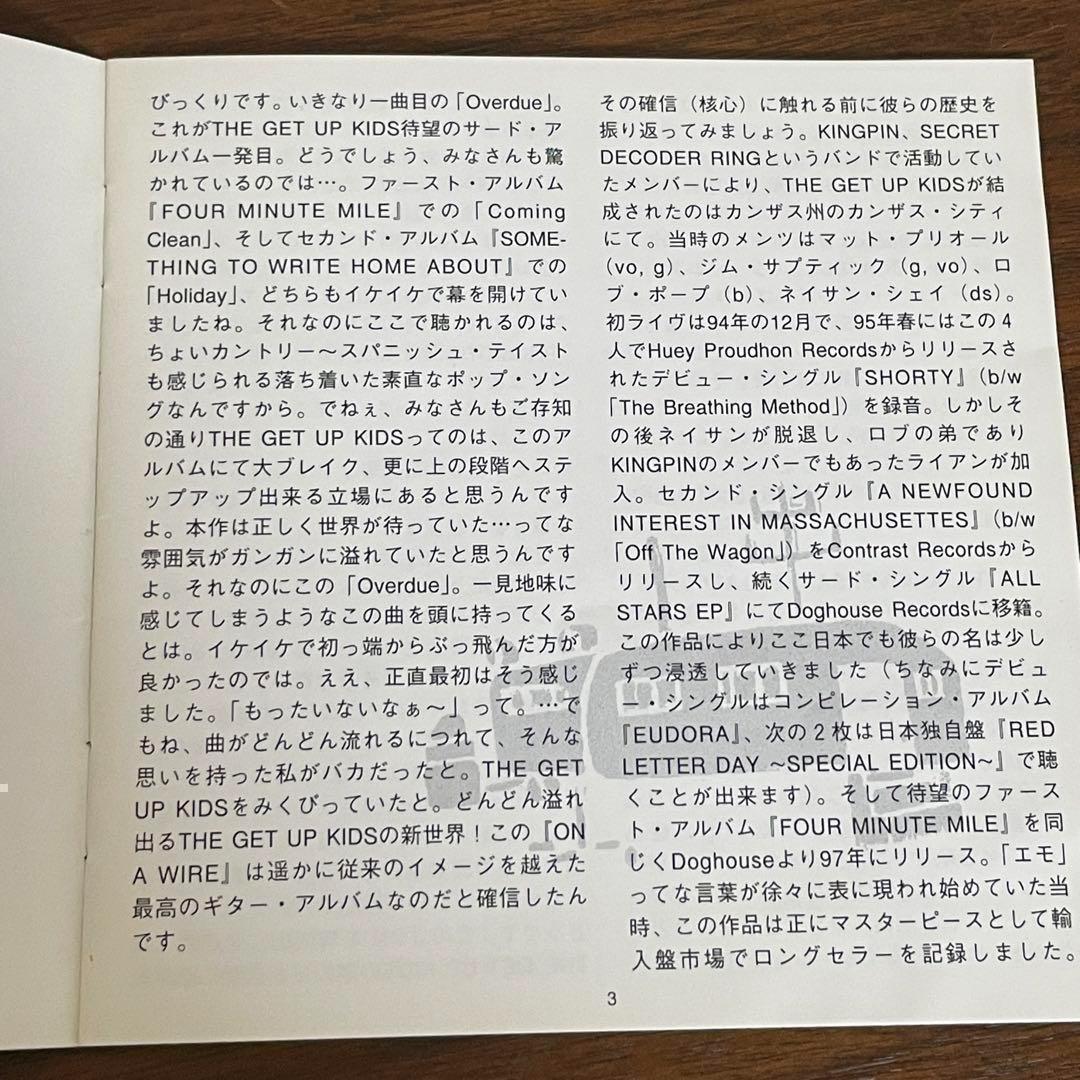 びっくりです。いきなり一曲目の「Overdue」。
これがTHE GET UP KIDS待望のサード・ア
ルバム一発目。どうでしょう、みなさんも驚
かれているのでは…。ファースト・アルバム
『FOUR MINUTE MILE』での「Coming
Clean」、そしてセカンド・アルバム『SOME-
THING TO WRITE HOME ABOUT』での
「Holiday」、どちらもイケイケで幕を開けてい
ましたね。それなのにここで聴かれるのは、
ちょいカントリー〜スパニッシュ・テイスト
も感じられる落ち着いた素直なポップ・ソン
グなんですから。でねぇ、みなさんもご存知
の通りTHE GET UP KIDSってのは、このア
ルバムにて大ブレイク、更に上の段階へステ
ップアップ出来る立場にあると思うんです
よ。本作は正しく世界が待っていた…ってな
雰囲気がガンガンに溢れていたと思うんです
よ。それなのにこの「Overdue」。一見地味に
感じてしまうようなこの曲を頭に持ってくる
とは。イケイケで初っ端からぶっ飛んだ方が
良かったのでは。ええ、正直最初はそう感じ
ました。「もったいないなぁ〜」って。…で
もね、曲がどんどん流れるにつれて、そんな
思いを持った私がバカだったと。THE GET
UP KIDSをみくびっていたと。どんどん溢れ
出るTHE GET UP KIDSの新世界！この『ON
A WIRE』は遥かに従来のイメージを越えた
最高のギター・アルバムなのだと確信したん
です。
その確信（核心）に触れる前に彼らの歴史を
振り返ってみましょう。KINGPIN、SECRET
DECODER RINGというバンドで活動してい
たメンバーにより、THE GET UP KIDSが結
成されたのはカンザス州のカンザス・シティ
にて。当時のメンツはマット・プリオール
（vo, g）、ジム・サプティック（g, vo）、ロ
ブ・ポープ（b）、ネイサン・シェイ（ds）。
初ライヴは94年の12月で、95年春にはこの４
人でHuey Proudhon Recordsからリリースさ
れたデビュー・シングル『SHORTY』（b/w
「The Breathing Method」）を録音。しかしそ
の後ネイサンが脱退し、ロブの弟であり
KINGPINのメンバーでもあったライアンが加
入。セカンド・シングル『A NEWFOUND
INTEREST IN MASSACHUSETTES』（b/w
「Off The Wagon」）をContrast Recordsから
リリースし、続くサード・シングル『ALL
STARS EP』にてDoghouse Recordsに移籍。
この作品によりここ日本でも彼らの名は少し
ずつ浸透していきました（ちなみにデビュ
ー・シングルはコンピレーション・アルバム
『EUDORA』、次の２枚は日本独自盤『RED
LETTER DAY 〜SPECIAL EDITION〜』で聴
くことが出来ます）。そして待望のファース
ト・アルバム『FOUR MINUTE MILE』を同
じくDoghouseより97年にリリース。「エモ」
ってな言葉が徐々に表に現われ始めていた当
時、この作品は正にマスターピースとして輸
入盤市場でロングセラーを記録しました。
3